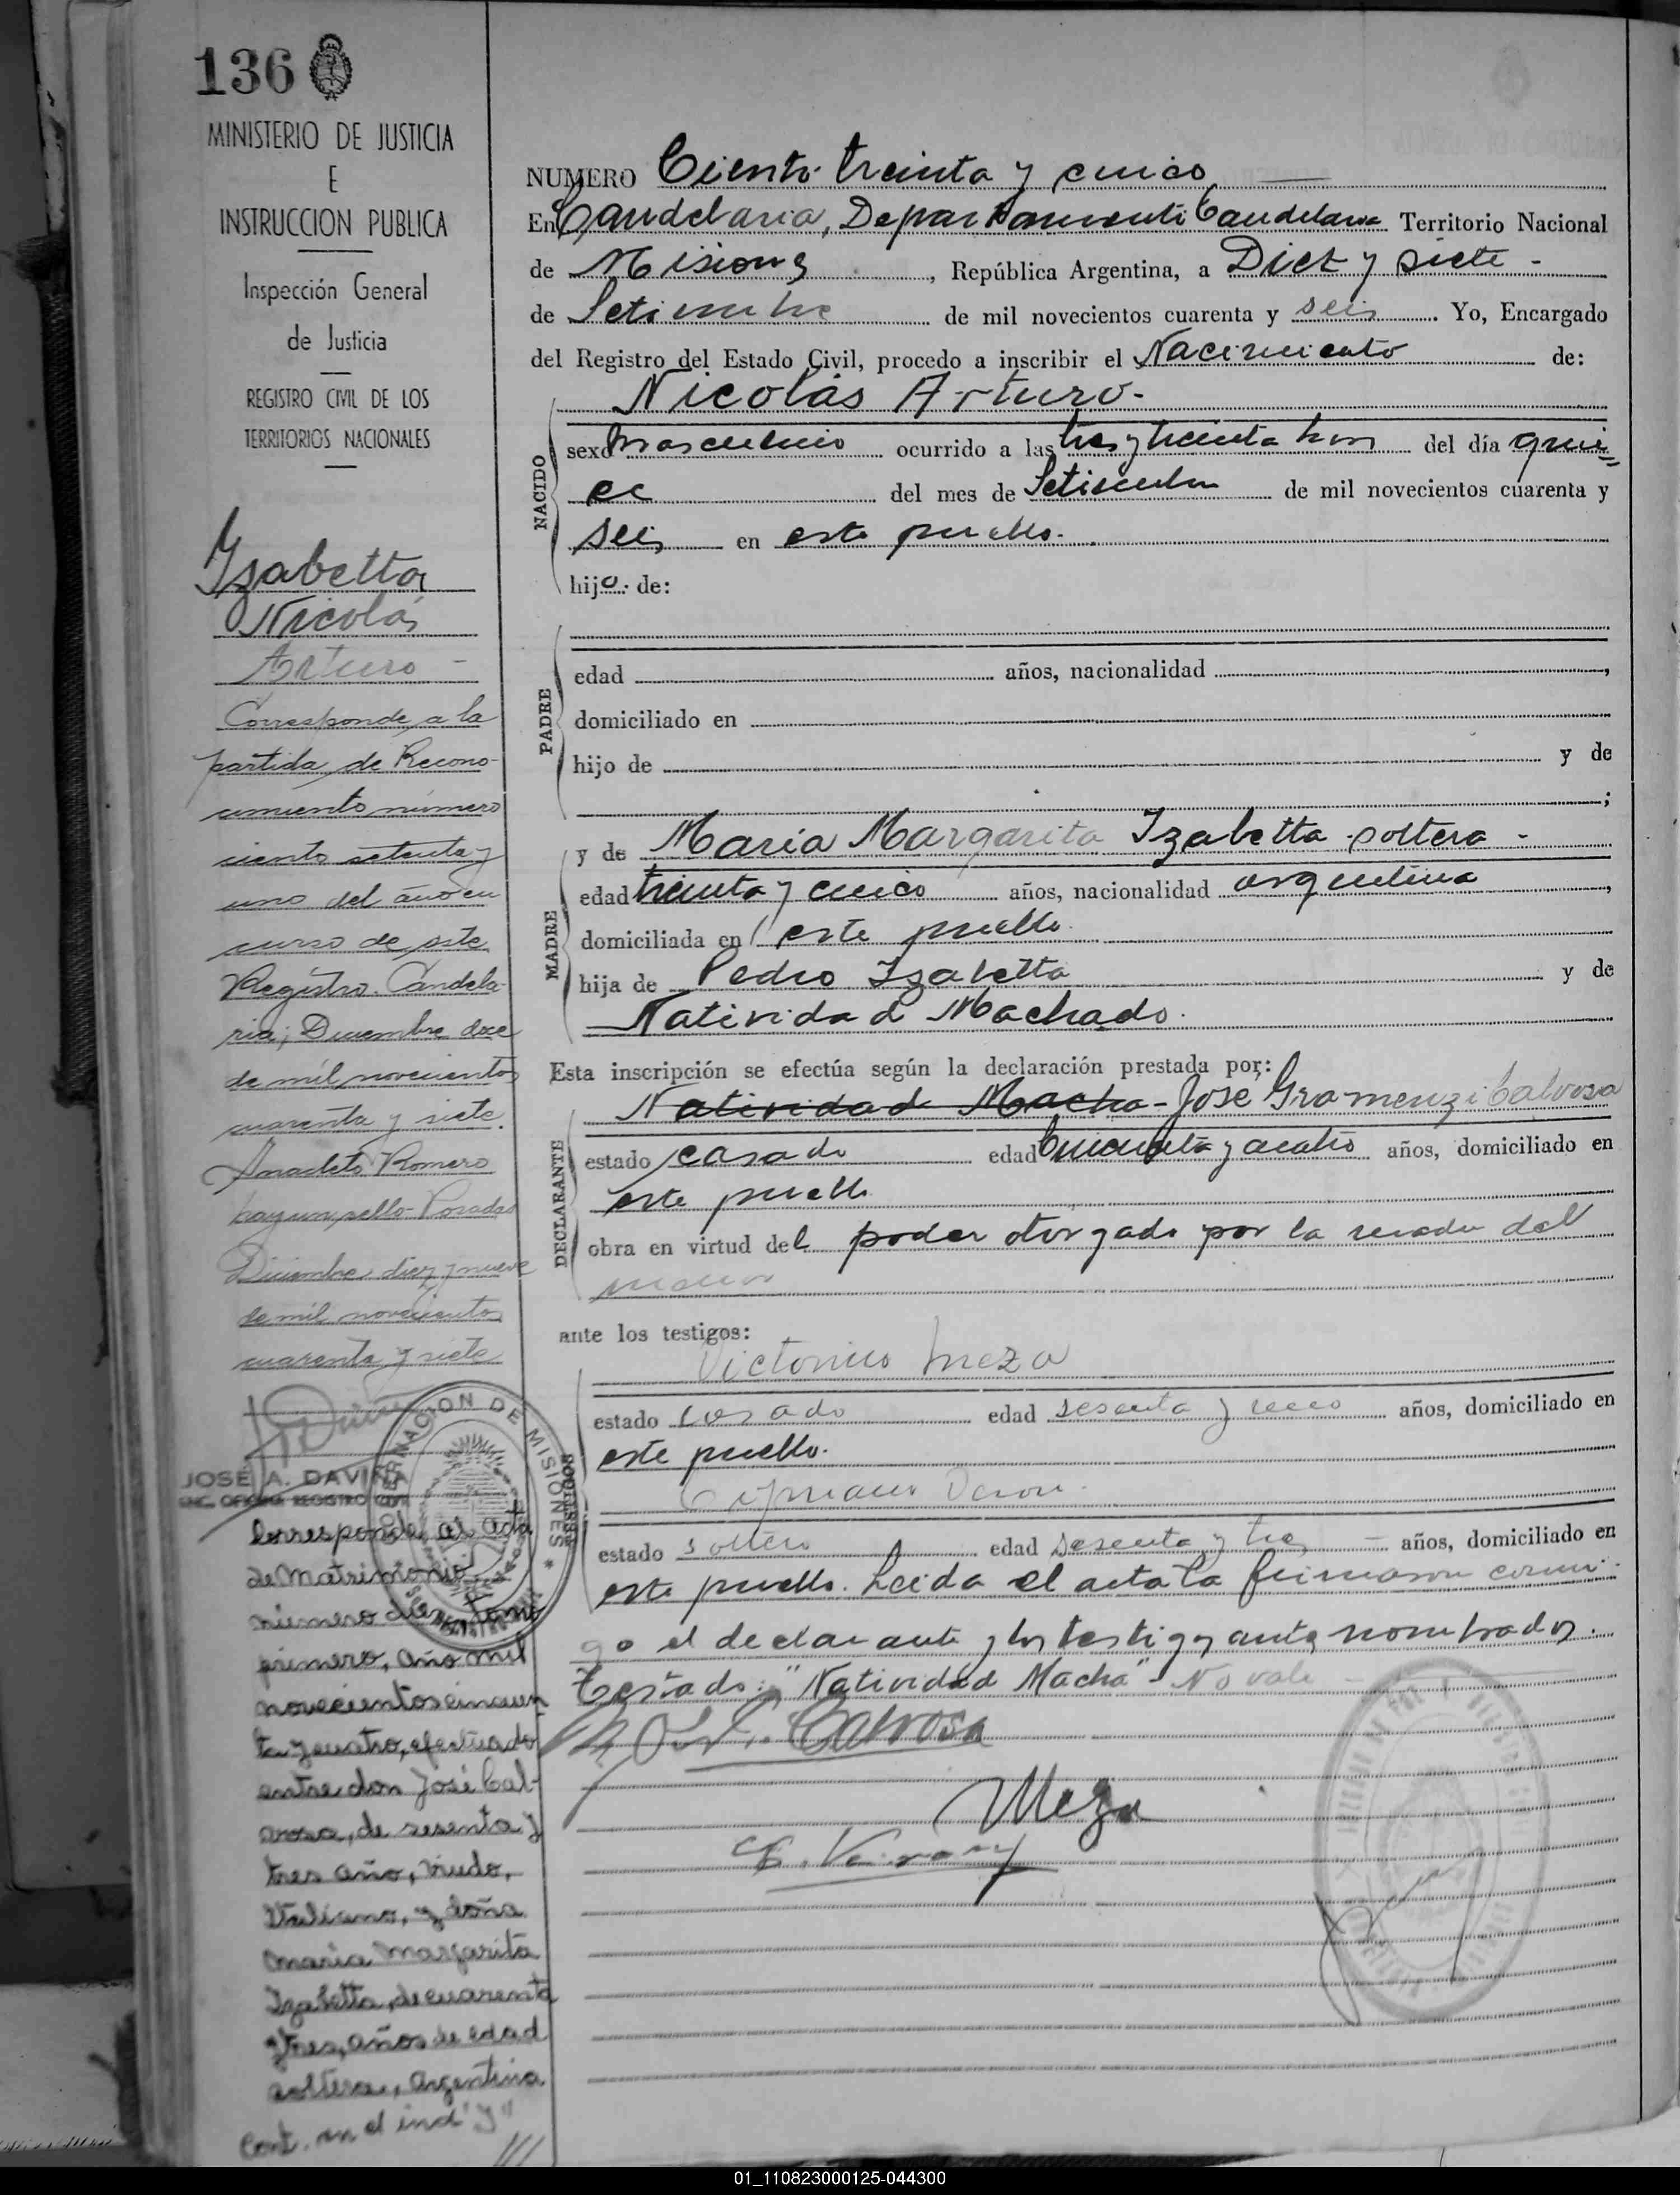 136
MINISTERIO DE JUSTICIA
E
INSTRUCCION PUBLICA
Inspección General
de Justicia
REGISTRO CIVIL DE LOS
TERRITORIOS NACIONALES
Yzabetta
Nicolás
Arturo -
Corresponde a la
partida de Recono-
cimiento número
ciento setenta y
uno del año en
curso de este
Registro. Candela-
ria; Diciembre doce
de mil novecientos
cuarenta y siete.
Anacleto Romero
sello - Posadas
Diciembre diez y nueve
de mil novecientos
cuarenta y siete
JOSÉ A. DAVIÑA
ENC. OFICINA REGISTRO CIVIL
GOBERNACION DE MISIONES
Corresponde al acta
de Matrimonio
número diez, tomo
primero, año mil
novecientos cincuen
ta y cuatro, efectuado
entre don José Cal-
vosa, de sesenta y
tres año, viudo,
Italiano, y doña
María Margarita
Izabetta, de cuarenta
y tres, años de edad
soltera, Argentina
Cont. en el ind "Y"
NUMERO Ciento treinta y cinco
En Candelaria, Departamento Candelaria Territorio Nacional
de Misiones, República Argentina, a Diez y siete -
de Setiembre de mil novecientos cuarenta y seis. Yo, Encargado
del Registro del Estado Civil, procedo a inscribir el Nacimiento de:
Nicolás Arturo.-
NACIDO
sexo masculino ocurrido a las tres y treinta horas del día quin=
ce del mes de Setiembre de mil novecientos cuarenta y
seis en este pueblo.
hijo. de:
PADRE
edad años, nacionalidad ,
domiciliado en
hijo de y de
;
MADRE
y de María Margarita Izabetta soltera -
edad treinta y cinco años, nacionalidad argentina,
domiciliada en este pueblo
hija de Pedro Izabetta y de
Natividad Machado.
Esta inscripción se efectúa según la declaración prestada por:
DECLARANTE
Natividad Macha - José Gramenzi Calvosa
estado casado edad cincuenta y cuatro años, domiciliado en
este pueblo
obra en virtud del poder otorgado por la madre del
menor
ante los testigos:
TESTIGOS
Victorino Meza
estado casado edad sesenta y cinco años, domiciliado en
este pueblo.
Cipriano
estado soltero edad sesenta y tres - años, domiciliado en
este pueblo. Leida el acta la firmaron conmi
go el declarante y los testigos antes nombrados.
Testado: "Natividad Macha" - No vale
Calvosa
Meza
01_110823000125-044300